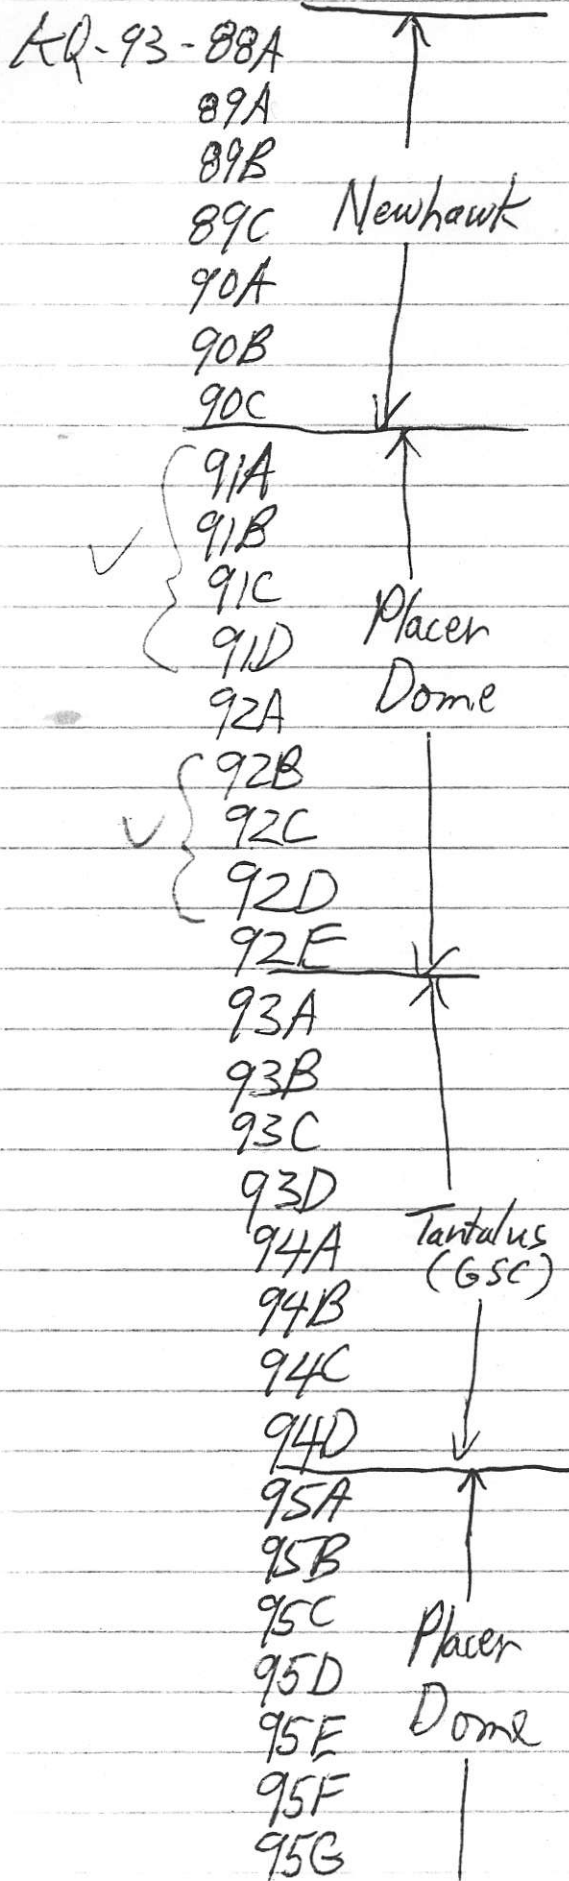 KQ-93-88A
89A
89B
89C Newhawk
90A
90B
90C
91A
91B
91C
91D Placer
92A Dome
92B
92C
92D
92E
93A
93B
93C
93D
94A Tantalus
94B (GSC)
94C
94D
95A
95B
95C
95D Placer
95E Dome
95F
95G